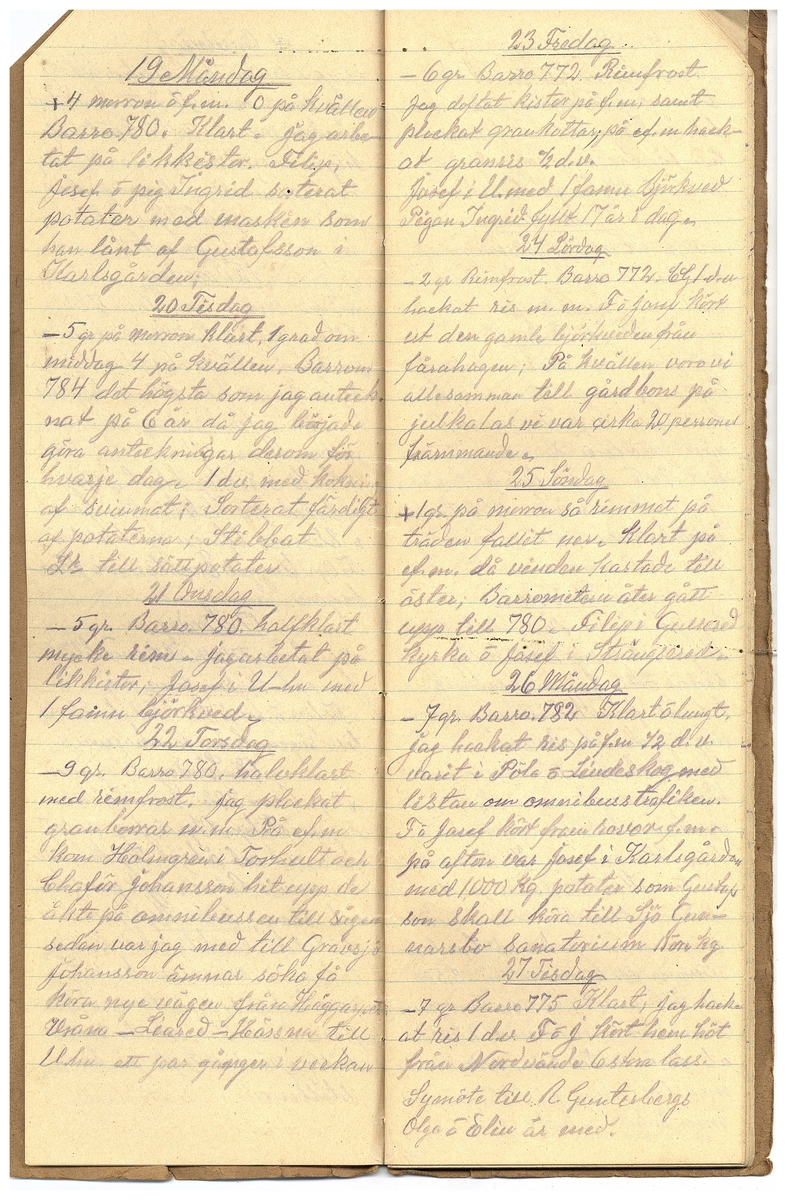 19 Måndag
+4 morron ö f.m. 0 på kvällen
Barro 780. Klart. jag arbe-
tat på likkistor. Filip,
Josef ö pig Ingrid soterat
potater med maskin som
han lånt af Gustafsson i
Karlsgården;
20 Tisdag
-5 gr på morron klart, 1 grad om
middag 4 på kvällen, Barrom
784 det högsta som jag anteck-
nat på 6 år då jag började
göra anteckningar derom för
hvarje dag. 1 dv. med kokni
af svinmat; Sorterat färdigt
af potaterna; Stibbat
till sättpotater
21 Onsdag
-5 gr. Barro. 780. halfklart
mycke rim. jag arbetat på
likkistor; Josef i U-hn med
1 famn björkved.
22 Torsdag
-9 gr. Barro 780. halvklart
med rimfrost. jag plockat
granborrar m.m. På ef.m
kom Holmgren i Torhult och
Chaför Johansson hit upp de
åkte på omnibussen till Sågen
sedan var jag med till Gravsjö
Johansson ämnar söka få
köra nye vägen från Häggarps
Vråna - Liared - Hössna till
Uhn ett par gånger i veckan
23 Fredag
-6 gr Barro 772. Rimfrost
Jag doftat kistor på f.m, samt
plockat grankottar, på ef.m hack-
at granris ½ d.v.
Josef i U. med 1 famn björkved
Pigan Ingrid fyllt 17 år i dag.
24 Lördag
-2 gr Rimfrost. Barro 772. EG 1 dv
hackat ris m.m. F ö jons kört
ut den gamle björkveden från
fårahagen; På kvällen voro vi
allesamman till gårdbons på
julkalas vi var cirka 20 personer
främmande.
25 Söndag
+1 gr. på morron så rimmet på
träden fallit ner. Klart på
ef.m. då vinden kastade till
öster; Barrometern åter gått
upp till 780. Filip i Gullered
kyrka ö Josef i Strängsered.
26 Måndag
-7 gr. Barro. 782 Klart ö lungt,
jag hackat ris på f.m ½ d.v.
varit i Pöla ö Lindeskog med
listan om omnibusstrafiken.
F ö Josef kört fram havor f.m.
på afton var Josef i Karlsgården
med 1000 Kg. potater som Gustaf
son skall köra till Sjö Gun-
narsbo Sanatorium Kg
27 Tisdag
-7 gr Barro 775 Klart, jag hack-
at ris 1 dv. F ö J kört hem höt
från Nordvända 6 stra lass.
Symöte till R. Guntesbergs
Olga ö Elin är med.